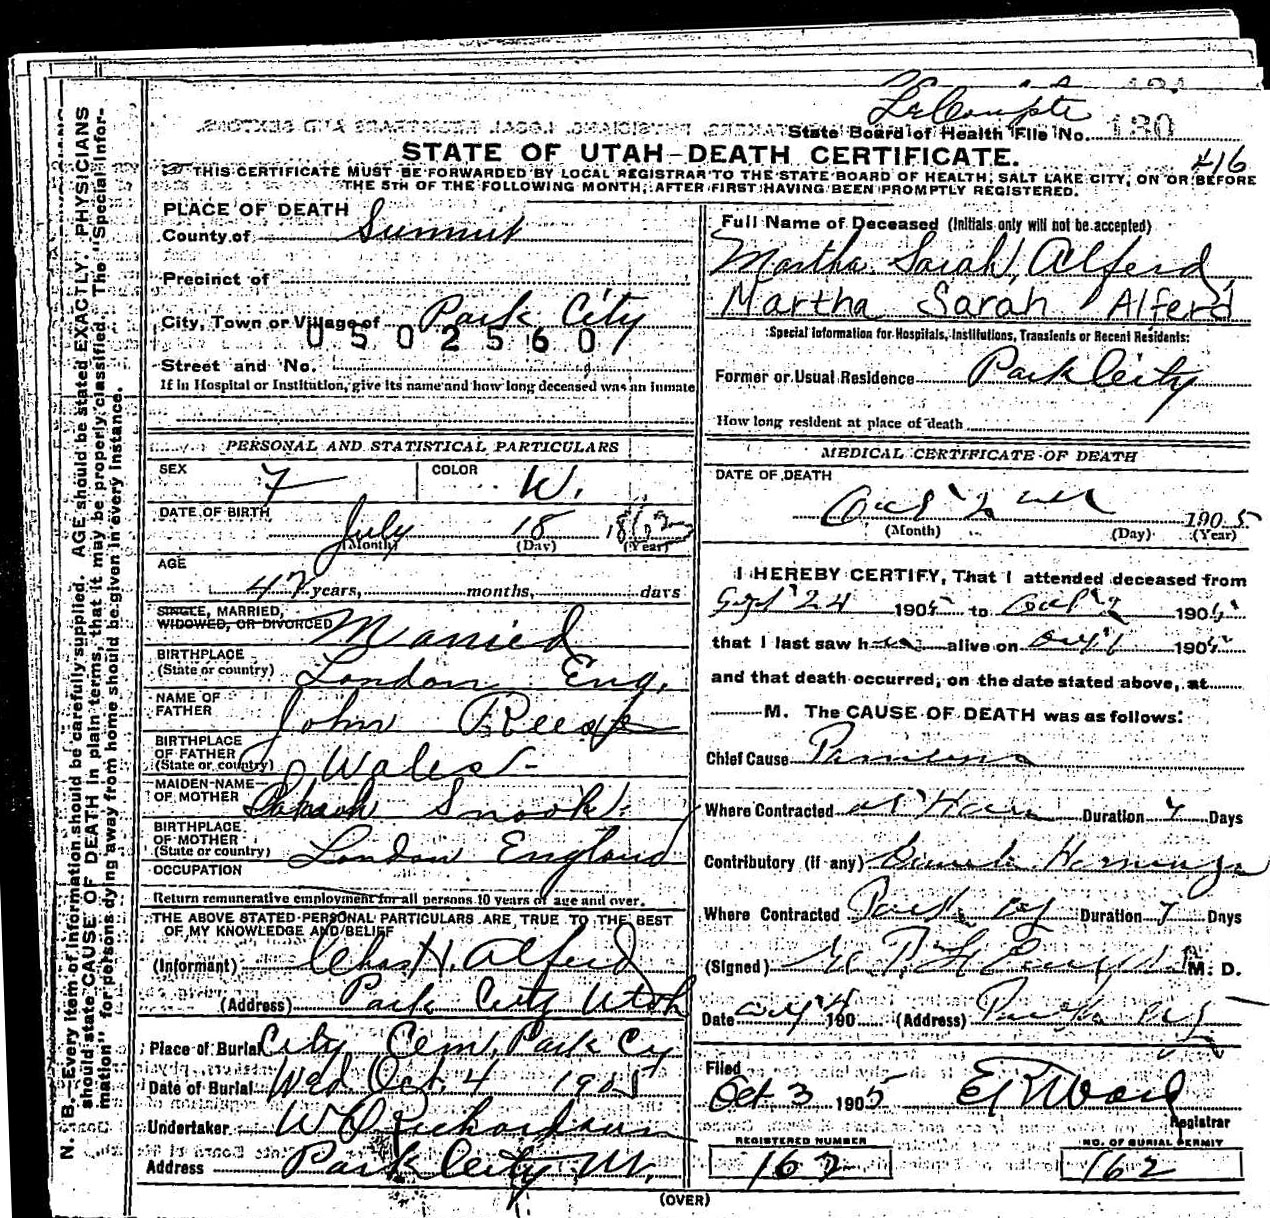 LeCompte
State Board of Health File No. 180
STATE OF UTAH-DEATH CERTIFICATE.
416
THIS CERTIFICATE MUST BE FORWARDED BY LOCAL REGISTRAR TO THE STATE BOARD OF HEALTH, SALT LAKE CITY, ON OR BEFORE
THE 5TH OF THE FOLLOWING MONTH, AFTER FIRST HAVING BEEN PROMPTLY REGISTERED.
N. B.—Every item of information should be carefully supplied. AGE should be stated EXACTLY. PHYSICIANS
should state CAUSE OF DEATH in plain terms, that it may be properly classified. The "Special Infor-
mation" for persons dying away from home should be given in every instance.
PLACE OF DEATH
County of Summit
Precinct of
City, Town or Village of Park City
0502560
Street and No.
If in Hospital or Institution, give its name and how long deceased was an inmate
PERSONAL AND STATISTICAL PARTICULARS
SEX F COLOR W.
DATE OF BIRTH July 18
(Month) (Day) (Year)
AGE
years, months, days
SINGLE, MARRIED,
WIDOWED, OR DIVORCED Married
BIRTHPLACE
(State or country) London Eng.
NAME OF
FATHER John Reese
BIRTHPLACE
OF FATHER
(State or country) Wales
MAIDEN NAME
OF MOTHER Snook
BIRTHPLACE
OF MOTHER
(State or country) London England
OCCUPATION
Return remunerative employment for all persons 10 years of age and over.
THE ABOVE STATED PERSONAL PARTICULARS ARE TRUE TO THE BEST
OF MY KNOWLEDGE AND BELIEF
(Informant) Chas H. Alferd
(Address) Park City Utah
Place of Burial City Cem. Park Cy
Date of Burial Wed Oct. 4 1905
Undertaker W Richardson
Address Park City Ut.
Full Name of Deceased (Initials only will not be accepted)
Martha Sarah Alferd
Martha Sarah Alferd
Special Information for Hospitals, Institutions, Transients or Recent Residents:
Former or Usual Residence Park City
How long resident at place of death
MEDICAL CERTIFICATE OF DEATH
DATE OF DEATH
Oct 2 1905
(Month) (Day) (Year)
I HEREBY CERTIFY, That I attended deceased from
Sept 24 1905 to Oct 2 1905
that I last saw her alive on Oct 1 1905
and that death occurred, on the date stated above, at
M. The CAUSE OF DEATH was as follows:
Chief Cause
Where Contracted at Home Duration 7 Days
Contributory (if any)
Where Contracted Park Cy Duration 7 Days
(Signed) M. D.
Date Oct 4 190 (Address) Park City
Filed
Oct 3 1905 Registrar
REGISTERED NUMBER
162
NO. OF BURIAL PERMIT
162
(OVER)